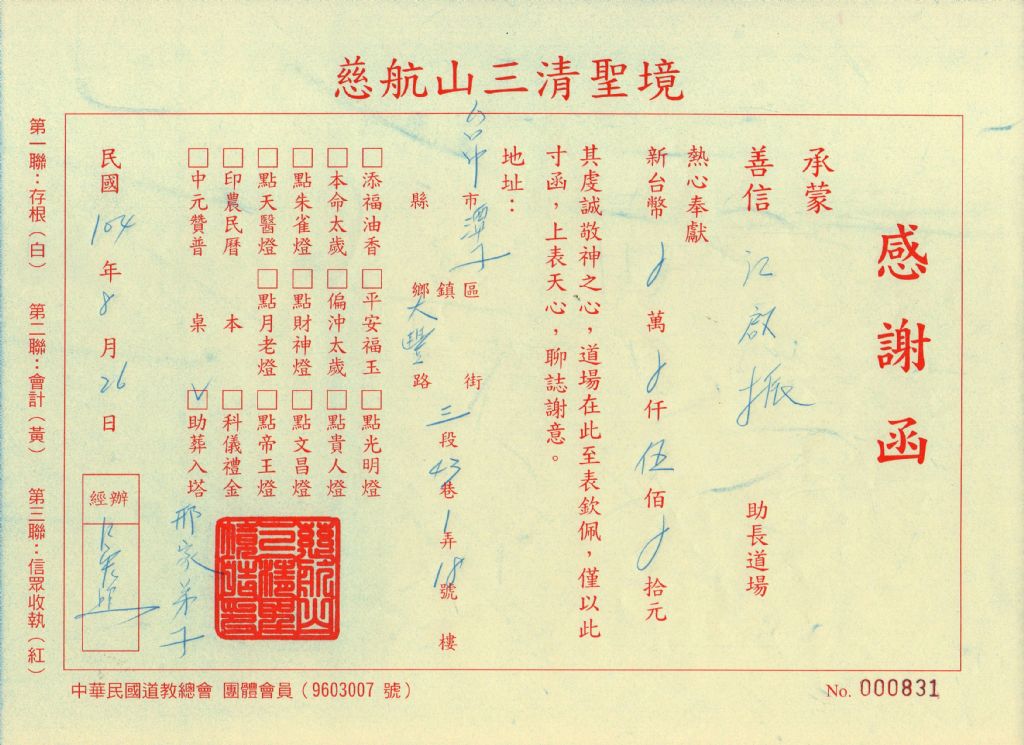 慈航山三清聖境
感謝函
承蒙
善信 江啟振 助長道場
熱心奉獻
新台幣 萬 仟 伍 佰 拾元
其虔誠敬神之心，道場在此至表欽佩，僅以此
寸函，上表天心，聊誌謝意。
地址：
台中市潭子區 街
縣 鄉鎮 大豐路 三段 43巷 1弄 18號 樓
□添福油香 □平安福玉 □點光明燈
□本命太歲 □偏沖太歲 □點貴人燈
□點朱雀燈 □點財神燈 □點文昌燈
□點天醫燈 □點月老燈 □點帝王燈
□印農民曆 本 □科儀禮金
□中元贊普 桌 ☑助葬入塔
邢家弟子
民國 104 年 8 月 26 日
經辦
第一聯：存根（白） 第二聯：會計（黃） 第三聯：信眾收執（紅）
中華民國道教總會 團體會員（9603007 號）
No. 000831